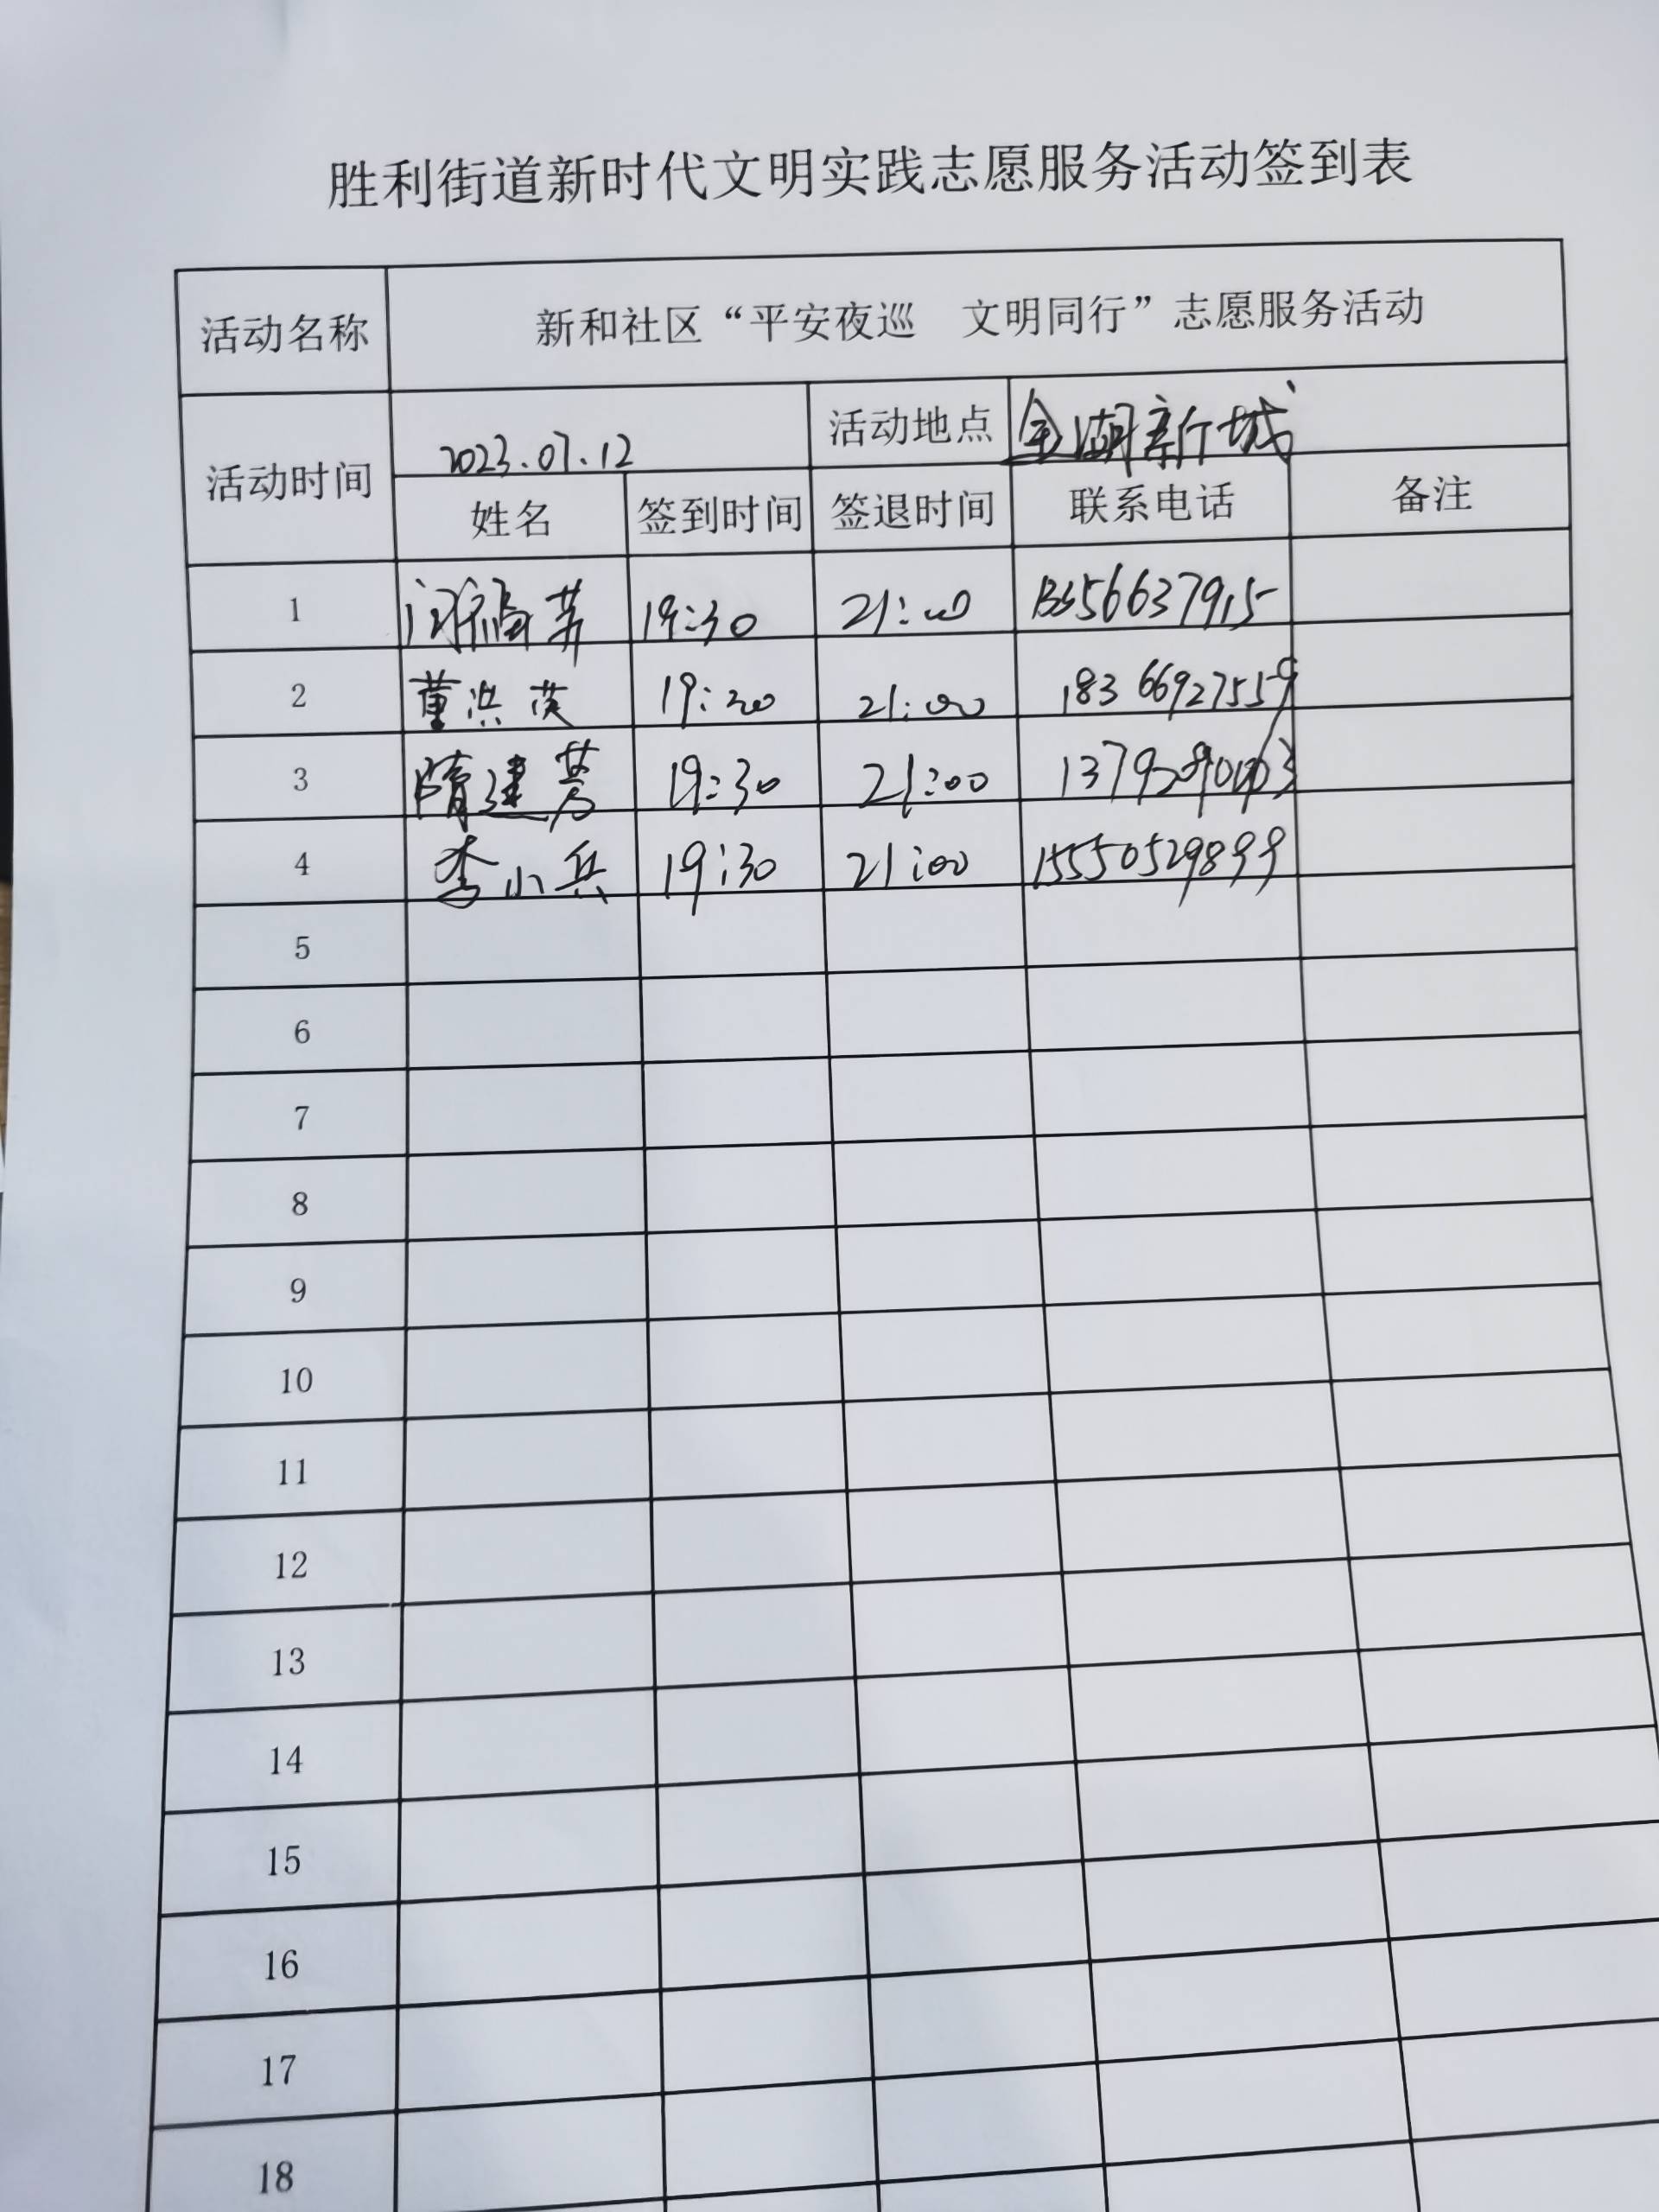 胜利街道新时代文明实践志愿服务活动签到表
活动名称 新和社区“平安夜巡 文明同行”志愿服务活动
活动时间 2023.07.12 活动地点 金湖新城
姓名 签到时间 签退时间 联系电话 备注
1 19:30 21:00
2 董洪英 19:30 21:00 18366927559
3 隋建芳 19:30 21:00
4 李小兵 19:30 21:00 15550529899
5
6
7
8
9
10
11
12
13
14
15
16
17
18